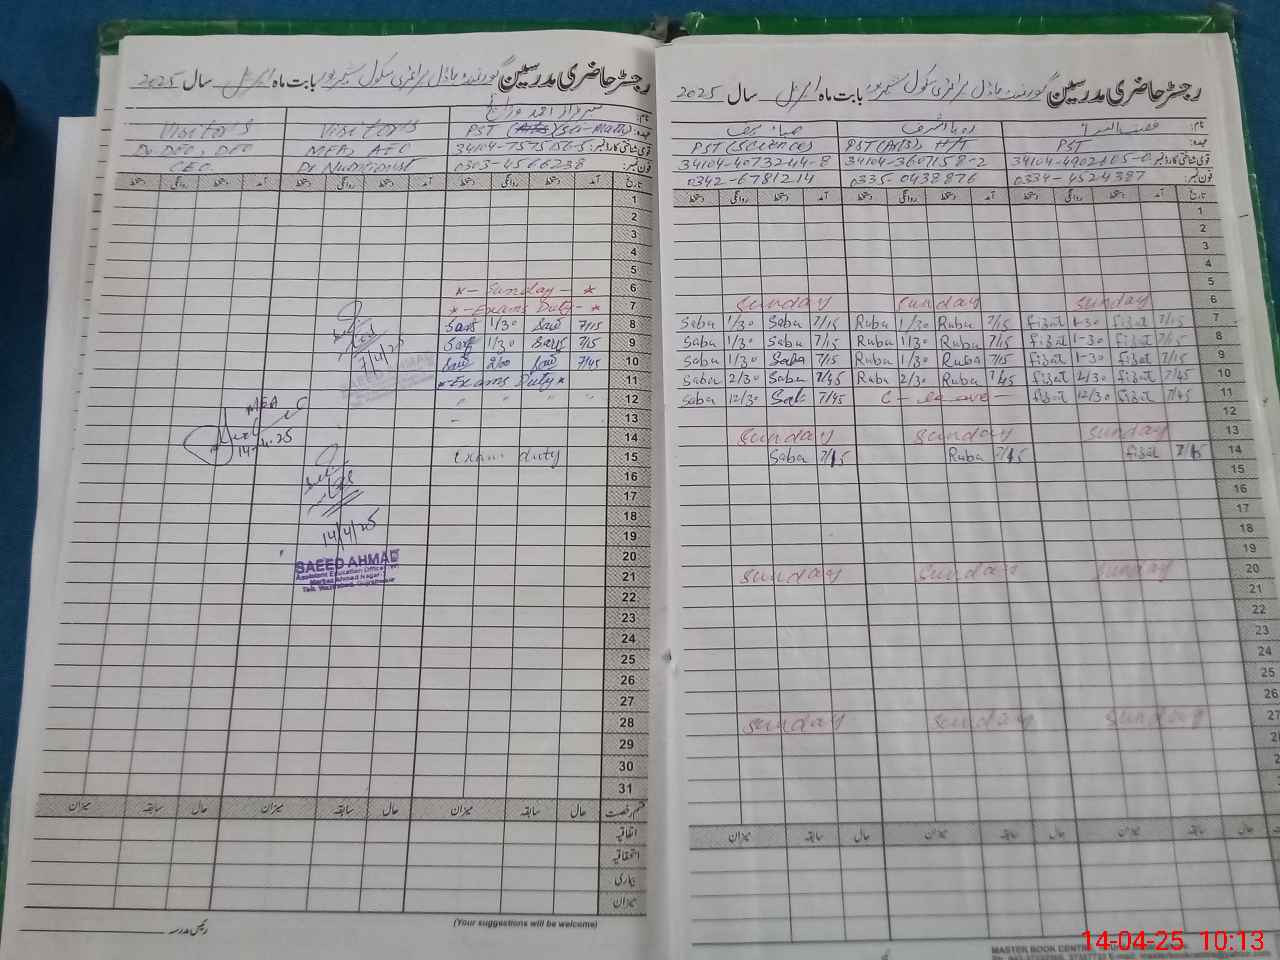 رجسٹر حاضری مدرسین گورنمنٹ ماڈل پرائمری سکول بابت ماہ اپریل سال 2025
نام:
Visitor's Visitor's
عہدہ: PST (Sci-Math)
Dy. DEO, DEO MEA, AEO
قومی شناختی کارڈ نمبر: 34104-7575156-5
CEO Dr Nutritionist
فون نمبر: 0303-4566238
تاریخ آمد دستخط روانگی دستخط آمد دستخط روانگی دستخط آمد دستخط روانگی دستخط
1
2
3
4
5
6 *- Sunday - *
7 *- Exams Duty - *
8 7/15 1/30
9 7/15 1/30
10 7/45 2/00
11 *Exams Duty*
12 " " " "
13 –
14
15 Exam duty
16
17
18
19
20
21
22
23
24
25
26
27
28
29
30
31
7/4/25
MEA
14-4-25
14/4/25
SAEED AHMAD
Assistant Education Officer
قسم رخصت حال سابقہ میزان حال سابقہ میزان حال سابقہ میزان
اتفاقیہ
استحقاقیہ
بیماری
میزان
رئیس مدرسہ
(Your suggestions will be welcome)
رجسٹر حاضری مدرسین گورنمنٹ ماڈل پرائمری سکول بابت ماہ اپریل سال 2025
نام:
عہدہ: PST PST (Arts) H/T PST (Science)
34104-4902165-0 34104-4073244-8
فون نمبر: 0334-4524387 0335-0438876 0342-6781214
تاریخ آمد دستخط روانگی دستخط آمد دستخط روانگی دستخط آمد دستخط روانگی دستخط
1
2
3
4
5
6 Sunday Sunday Sunday
7 Saba 1/30 Saba 7/15 Ruba 1/30 Ruba 7/15 fizat 1-30 fizat 7/15
8 Saba 1/30 Saba 7/15 Ruba 1/30 Ruba 7/15 fizat 1-30 fizat 7/15
9 Saba 1/30 Saba 7/15 Ruba 1/30 Ruba 7/15 fizat 1-30 fizat 7/15
10 Saba 2/30 Saba 7/45 Ruba 2/30 Ruba 7/45 fizat 2/30 fizat 7/45
11 Saba 12/30 Saba 7/45 C - leave - fizat 12/30 fizat 7/45
12
13 Sunday Sunday Sunday
14 Saba 7/45 Ruba 7/45 fizat 7/45
15
16
17
18
19
20 Sunday Sunday Sunday
21
22
23
24
25
26
27 Sunday Sunday Sunday
حال سابقہ میزان حال سابقہ میزان حال سابقہ میزان
MASTER BOOK CENTRE
14-04-25 10:13